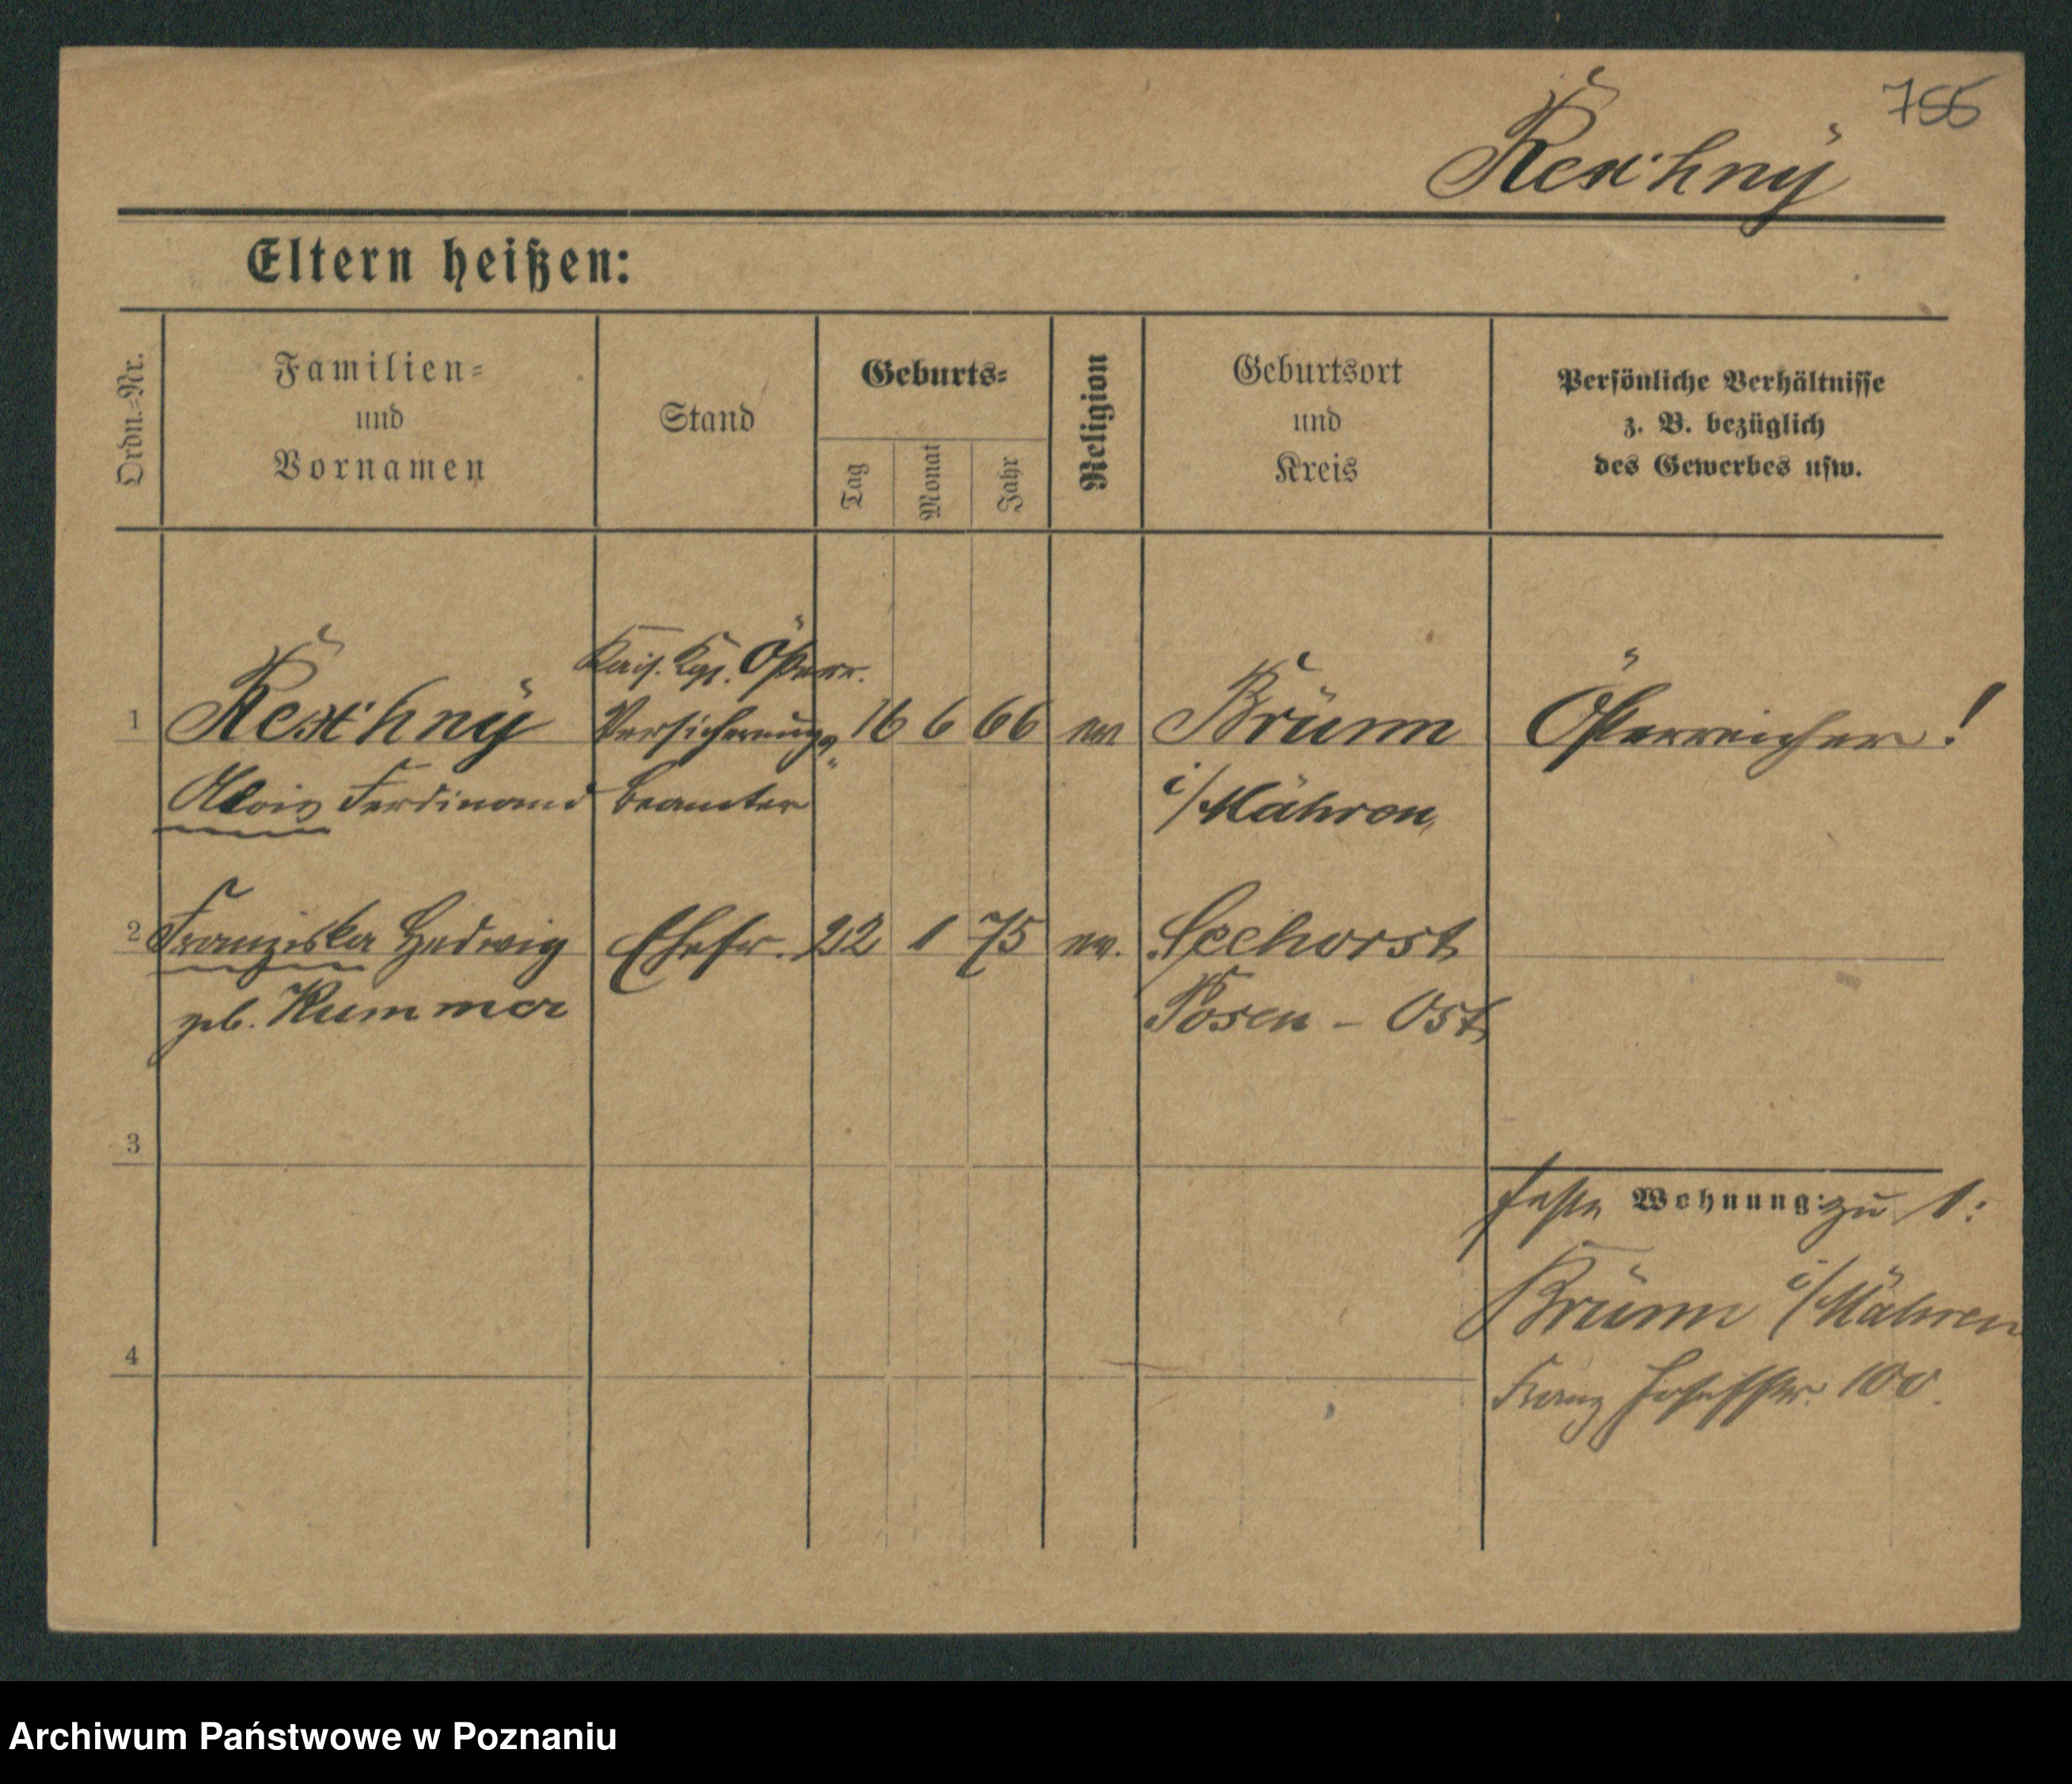 755
Rexhny
Eltern heißen:
Ordn.=Nr.
Familien=
und
Vornamen
Stand
Geburts=
Tag
Monat
Jahr
Religion
Geburtsort
und
Kreis
Persönliche Verhältnisse
z. B. bezüglich
des Gewerbes usw.
Kais. Kgl. Österr.
1 Rexhny Versicherungs= 16 6 66 ev Brünn Österreicher!
Alois Ferdinand beamter i/Mähren
2 Franziska Hedwig Ehefr. 22 1 75 ev. Seehorst
geb. Kummer Posen - Ost
3
feste Wohnung: zu 1:
Brünn i/Mähren
4
Franz Josefstr. 100.
Archiwum Państwowe w Poznaniu